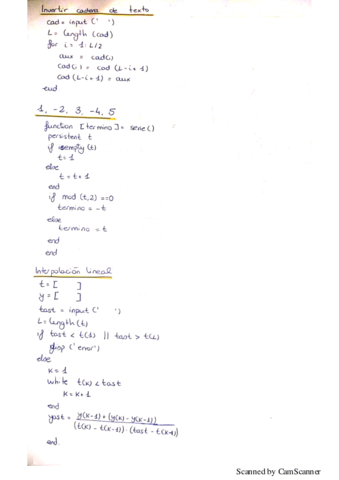 Invertir cadena de texto
cad = input (' ')
L = length (cad)
for i = 1: L/2
aux = cad(i)
cad(i) = cad (L-i+1)
cad (L-i+1) = aux
end
1, -2, 3, -4, 5
function [termino] = serie()
persistent t
if isempty(t)
t = 1
else
t = t+1
end
if mod (t,2) ==0
termino = -t
else
termino = t
end
end
Interpolación lineal
t = [ ]
y = [ ]
tast = input (' ')
L = length (t)
if tast < t(1) || tast > t(L)
disp ('error')
else
k = 1
while t(k) < tast
k = k+1
end
yast = y(k-1) + (y(k) - y(k-1))
(t(k) - t(k-1)) · (tast - t(k-1))
end
Scanned by CamScanner